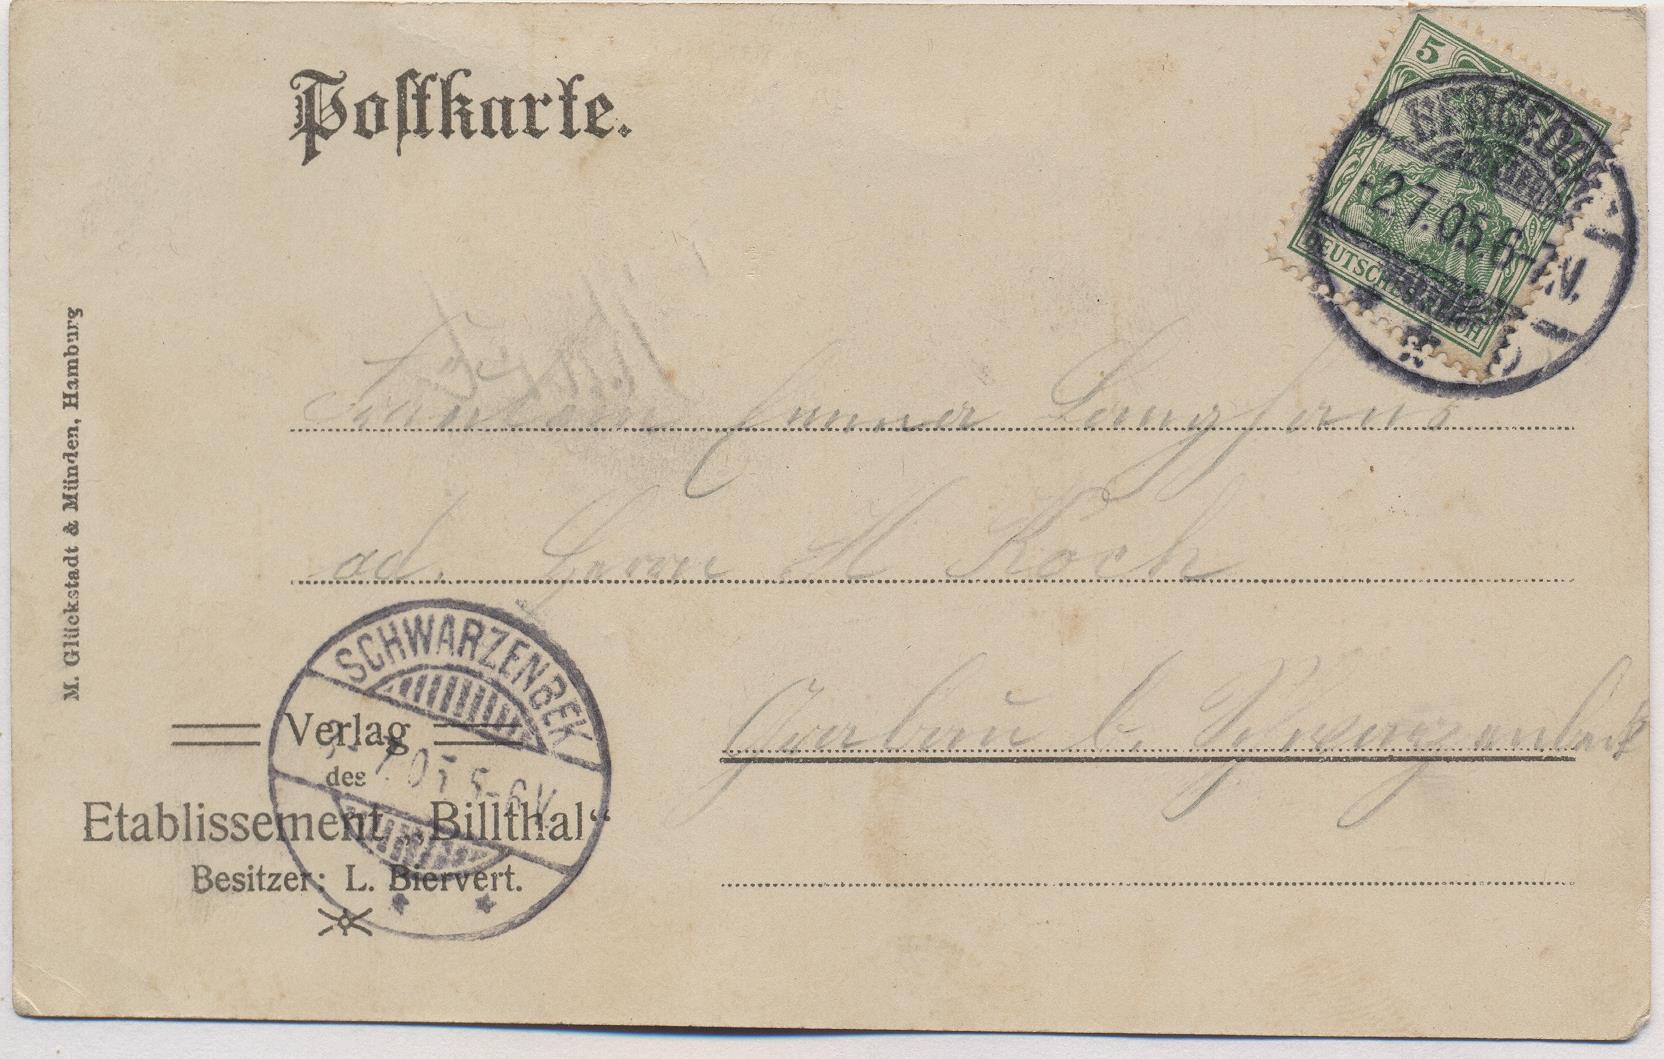 Postkarte.
5
DEUTSCHES REICH
BERGEDORF
2.7.05.6-7.V.
M. Glückstadt & Münden, Hamburg
Fräulein Emma Langhans
ad. Herrn H Koch
Grabau b. Schwarzenbeck
SCHWARZENBEK
7.05 5-6V
Verlag
des
Etablissement „Billthal“
Besitzer: L. Biervert.